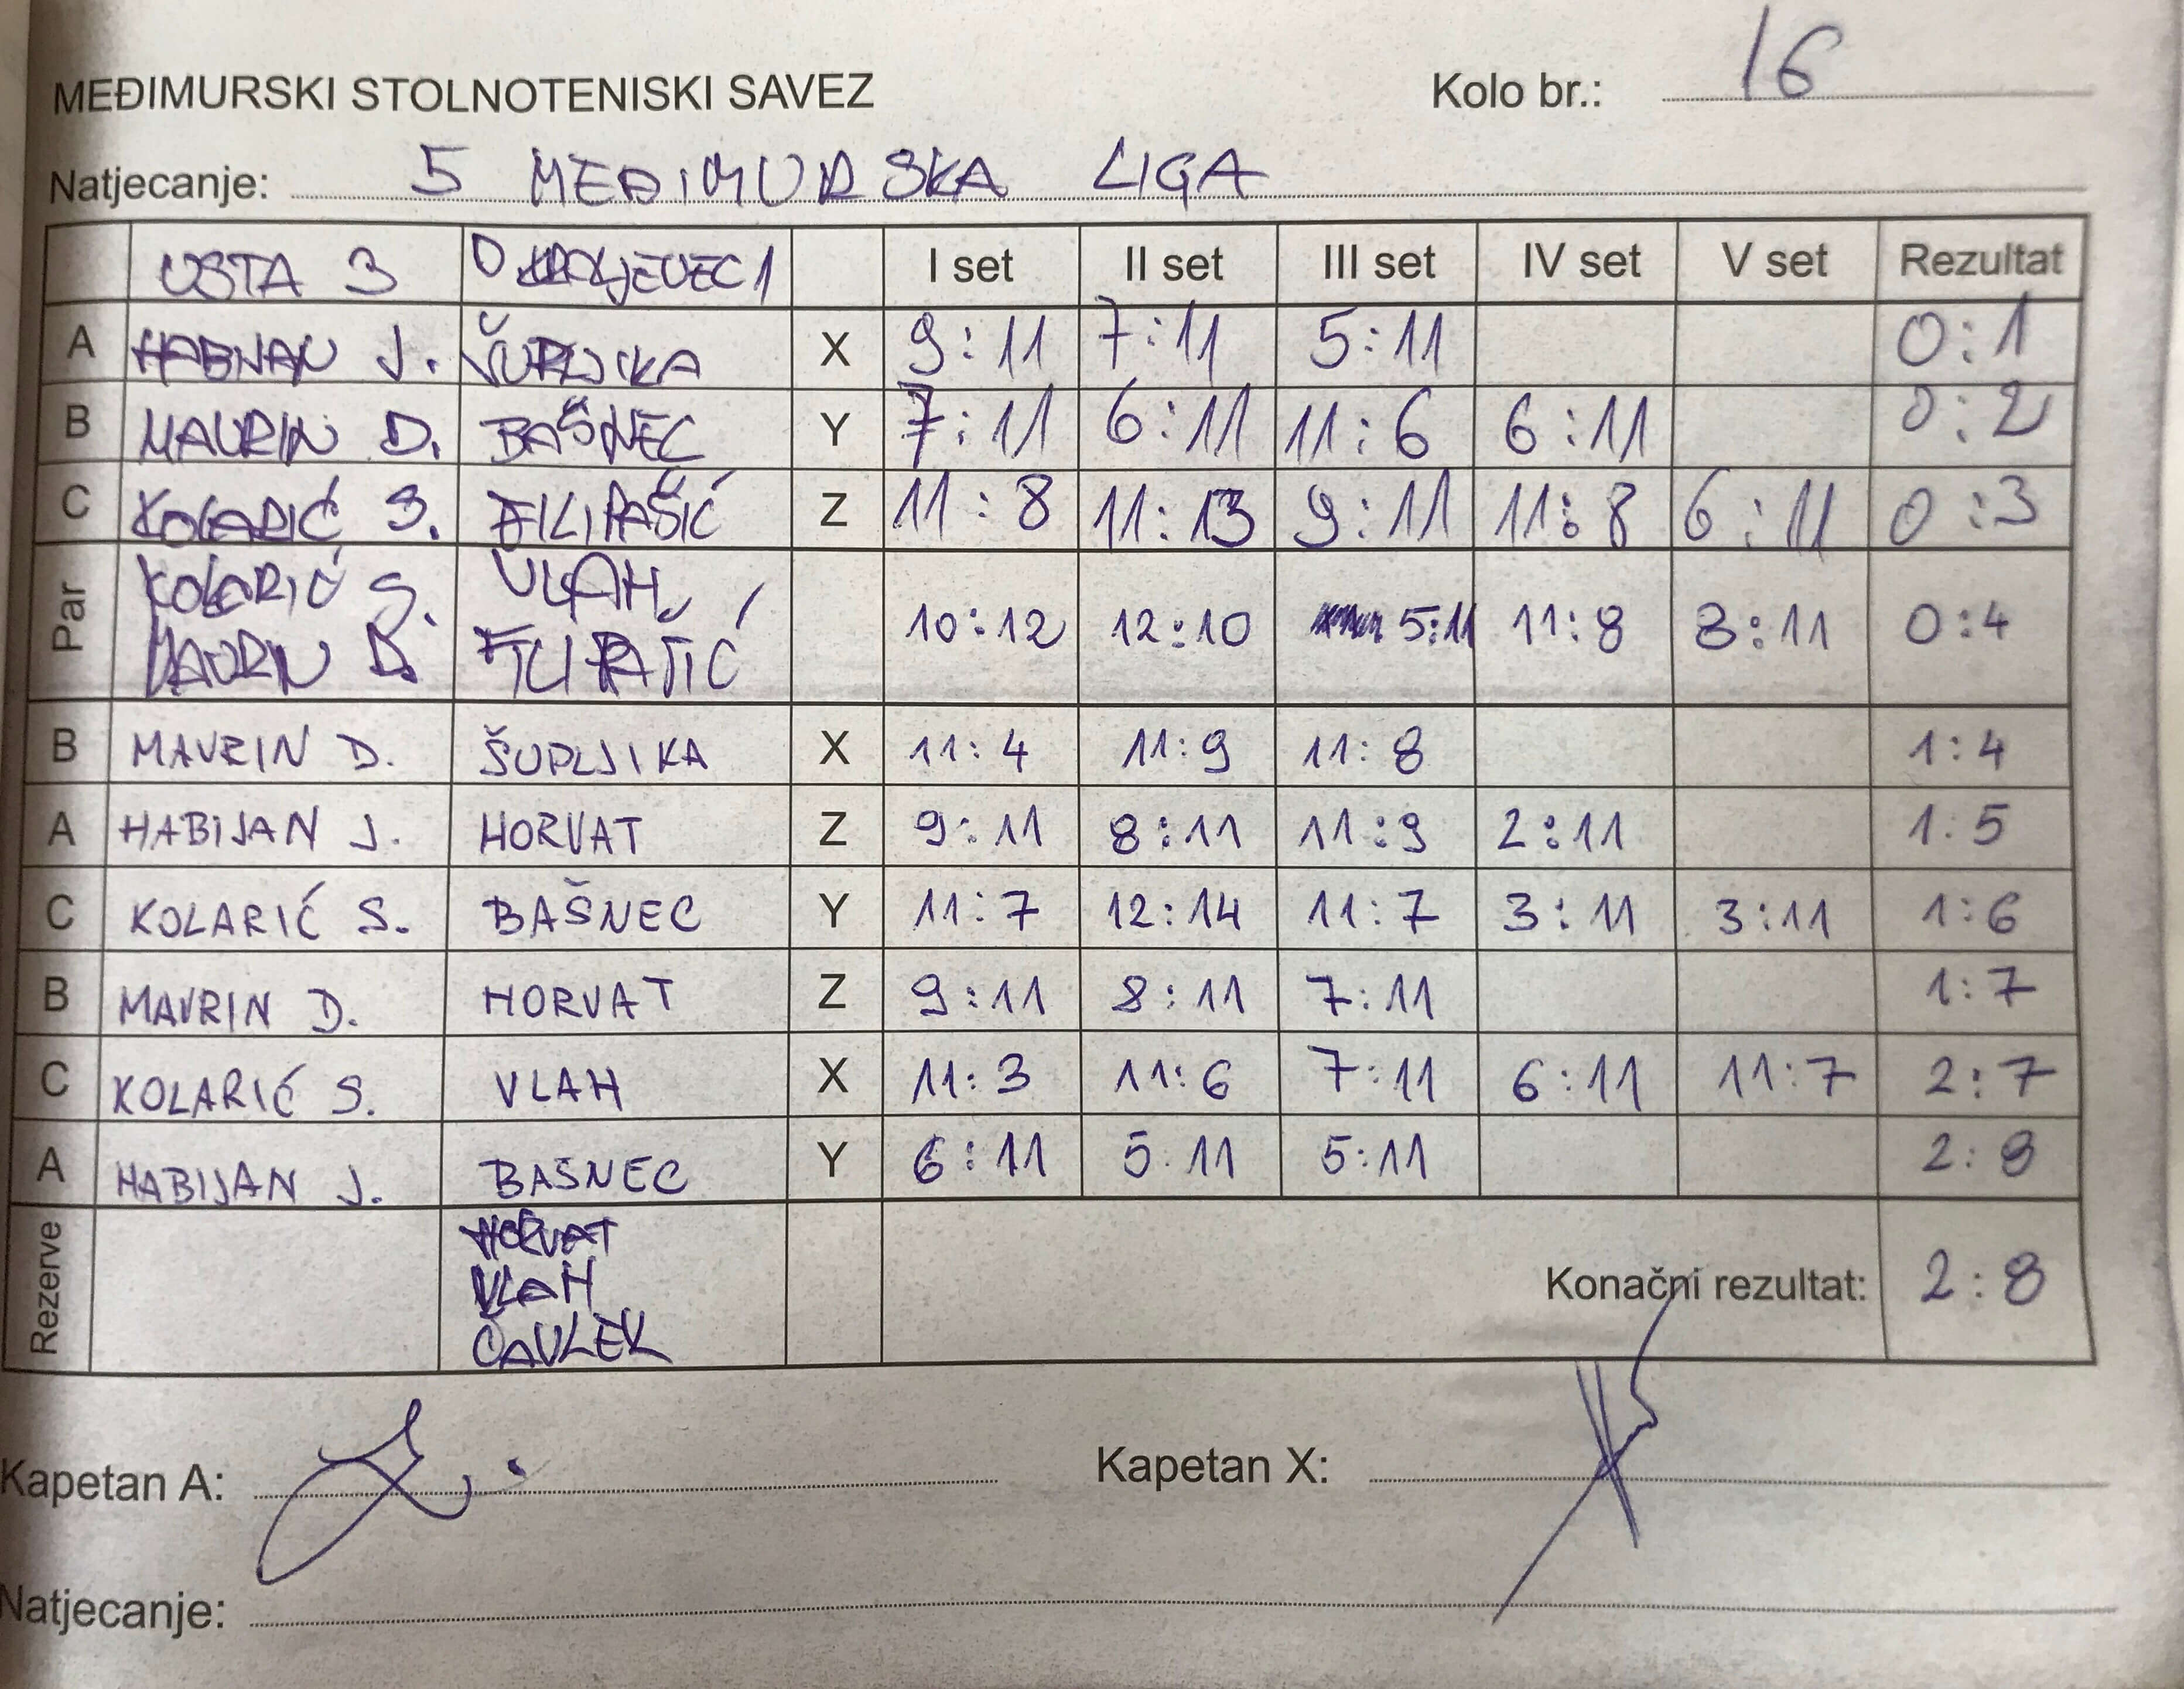 MEĐIMURSKI STOLNOTENISKI SAVEZ Kolo br.: 16
Natjecanje: 5 MEĐIMURSKA LIGA
USTA 3 D KRALJEVEC 1 I set II set III set IV set V set Rezultat
A HABIJAN J. ŠUPLJIKA X 9:11 7:11 5:11 0:1
B MAVRIN D. BAŠNEC Y 7:11 6:11 11:6 6:11 0:2
C KOLARIĆ S. FILIPAŠIĆ Z 11:8 11:13 9:11 11:8 6:11 0:3
Par KOLARIĆ S. VLAH 10:12 12:10 5:11 11:8 8:11 0:4
MAVRIN D. FILIPAŠIĆ
B MAVRIN D. ŠUPLJIKA X 11:4 11:9 11:8 1:4
A HABIJAN J. HORVAT Z 9:11 8:11 11:9 2:11 1:5
C KOLARIĆ S. BAŠNEC Y 11:7 12:14 11:7 3:11 3:11 1:6
B MAVRIN D. HORVAT Z 9:11 8:11 7:11 1:7
C KOLARIĆ S. VLAH X 11:3 11:6 7:11 6:11 11:7 2:7
A HABIJAN J. BAŠNEC Y 6:11 5:11 5:11 2:8
Rezerve HORVAT
VLAH Konačni rezultat: 2:8
ČAVLEK
Kapetan A: Kapetan X:
Natjecanje: